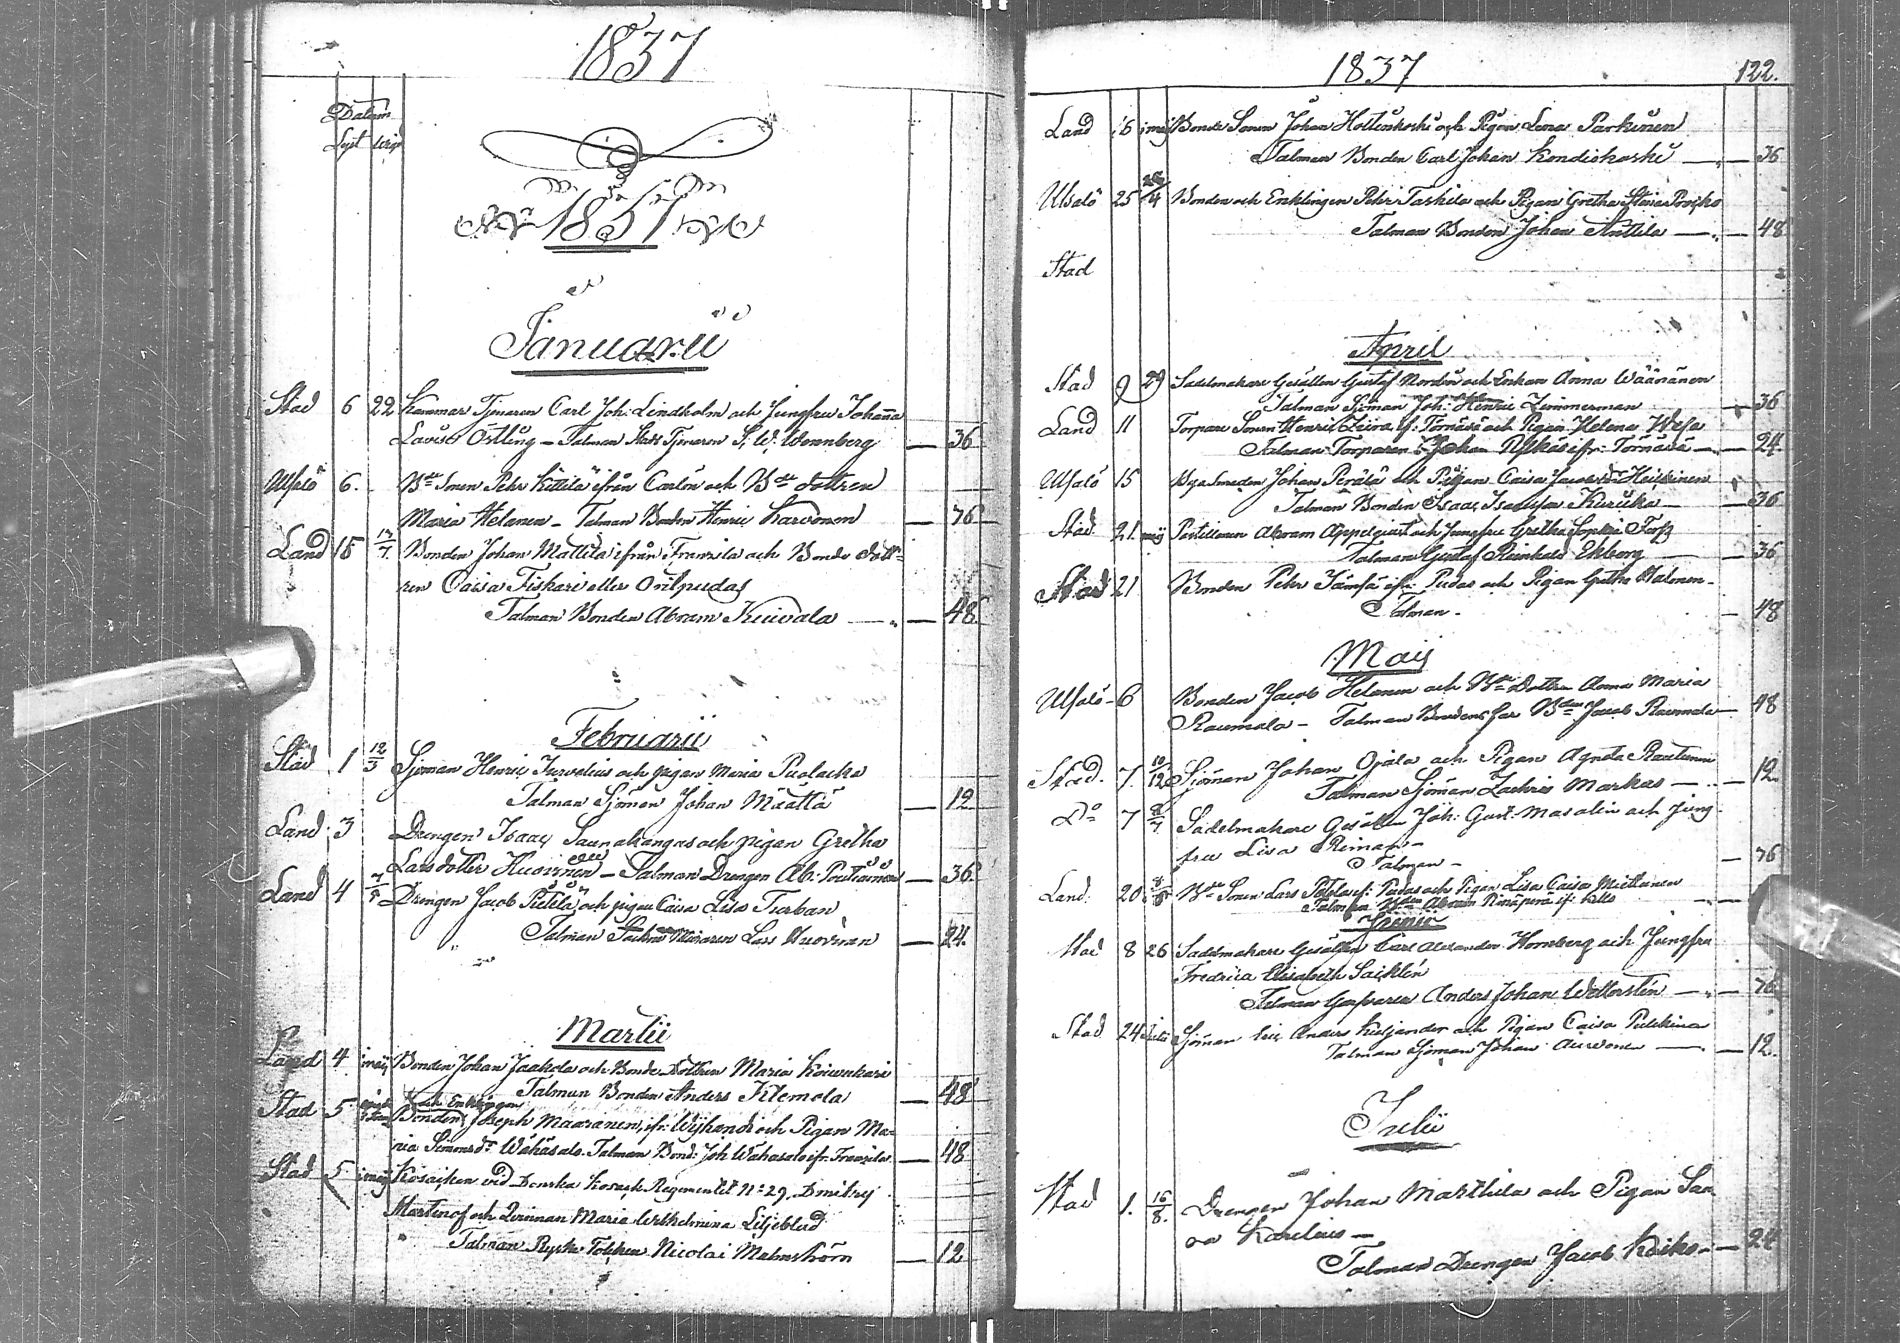 1837
Datum
Lyst wigd
1837
Januarii
Stad 6 22 Kammar Tjenaren Carl Joh: Lindholm och Jungfru Johanna
Lovisa Östling — Talman Stads Tjenaren S. W. Wennberg — 36
Uhalö 6. Bde Sonen Pehr Kittilä ifrån Carlön och Bde dottren
Maria Helanen — Talman Bonden Henric Karvonen — 76
Land 15 Bonden Johan Mattila ifrån Franzila och Bonde dott-
ren Caisa Fiskari eller Onilpudas
Talman Bonden Abram Kuivala — 48
Februarii
Stad 1 12/3 Sjöman Henric Turvelius och pigan Maria Puolacka
Talman Sjöman Johan Määttä — 12
Land 3 Drengen Isaac Saunakangas och pigan Gretha
Lars dotter — Talman Drengen Ab:
— 36
Land 4 Drengen Jacob Pietilä och pigan Caisa Lisa Turban
Talman Lars Huovinan — 24.
Martii
Land 4 Bonden Johan Jaakola och Bonde Dottren Maria Koivukari
Talman Bonden Anders Klemola — 48
och Enklingen
Stad 5 Bonden Joseph Maaranen, ifr: Wijhandi och Pigan Ma-
ria Simonsdr Wähäsalo. Talman Bond: Joh Wähäsalo ifr. Franzila — 48
Stad 5 Kosacken vid Donska Kosack Regementet No 29. Dmitrij
Martinof och Qvinnan Maria Wilhelmina Liljeblad
Talman Ryske Tolken Nicolai Malmström — 12
1837 122.
Land 6 Bonde Sonen Johan Holtinkoski och Pigan Lena Parkinen
Talman Bonden Carl Johan Kondiskoski — 36
Uhalö 25 Bonden och Enklingen Pehr Taskila och Pigan Gretha Stina
Talman Bonden Johan Anttila — 48
Stad
April
Stad 9 29 Sadelmakare Gesällen Gustaf Nordin och Enkan Anna Wäänänen
Talman Sjöman Joh: Henric Zimmerman — 36
Land 11 Torpare Sonen Henric Leiva if: Törnävä och Pigan Helena Wesa
Talman Torparen Johan ifr: Törnävä — 24.
Uhalö 15 Byasmeden Johan Perälä och Pigan Caisa Jacobsdr Heikkinen
Talman Bonden Isaac Isacksson Kuricka — 36
Stad 21 Postillionen Abram Appelgrén och Jungfru Gretha Sophia Forss
Talman Gustaf Reinhold Ekberg — 36
Stad 21 Bonden Pehr Jämsä ifr: Pudas och Pigan Gretha Halonen.
Talman. — 48
Maij
Uhalö — 6 Bonden Jacob Helanen och Bde Dottren Anna Maria
Raumala — Talman Brudens far Bden Jacob Raumala — 48
Stad. 7. 10/12 Sjöman Johan Ojala och Pigan Agneta Rautianen
Talman Sjöman Zachris Markus — 12.
Do 7 Sadelmakare Gesällen Joh: Gust: Masalin och Jung-
fru Lisa Reiman —
Talman — 76
Land. 20 Bde Sonen Lars if: Pudas och Pigan Lisa Caisa Miettunen
Talman Bden Abram
Junii
Stad 8 26 Sadelmakare Gesällen Carl Alexander Hornberg och Jungfru
Fredrica Elisabeth Sacklén
Talman Garfvaren Anders Johan Wetterstén — 76
Stad 24 Sjöman Eric Anders Kiljander och Pigan Caisa Pulckina
Talman Sjöman Johan Auvonen — 12.
Julii
Stad 1. 16/8. Drengen Johan Marttila och Pigan Sa-
ra Karelius —
Talman Drengen Jacob Koiko — 24